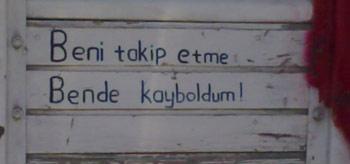 Beni takip etme
Bende kayboldum!